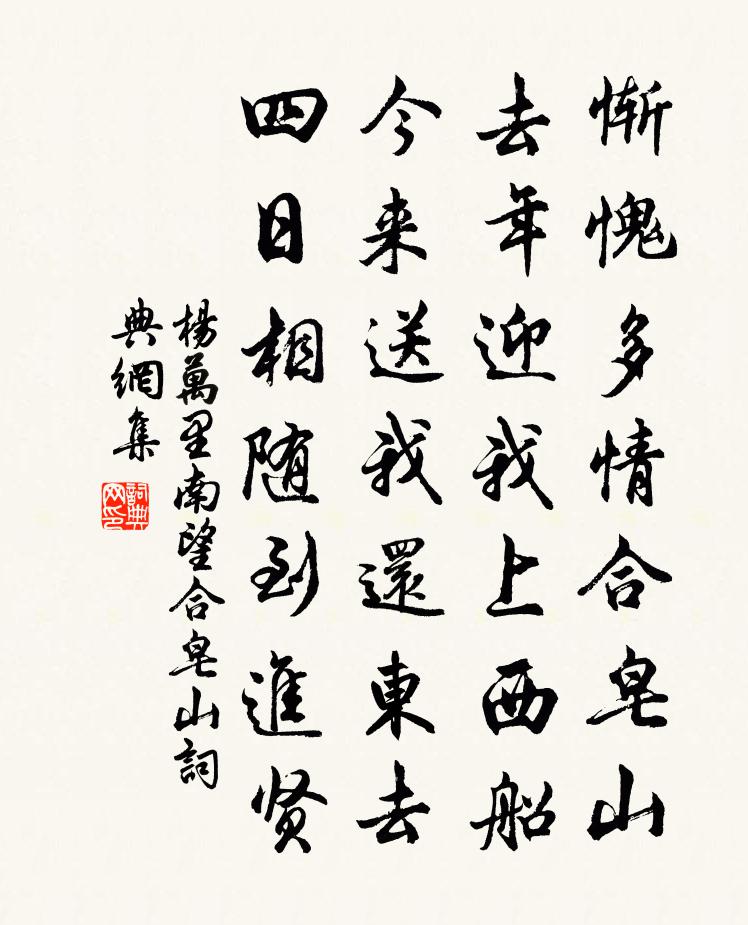 惭愧多情合皂山
去年迎我上西船
今来送我還東去
四日相随到進贤
楊萬里南望合皂山詞
典網集
詞典
网印